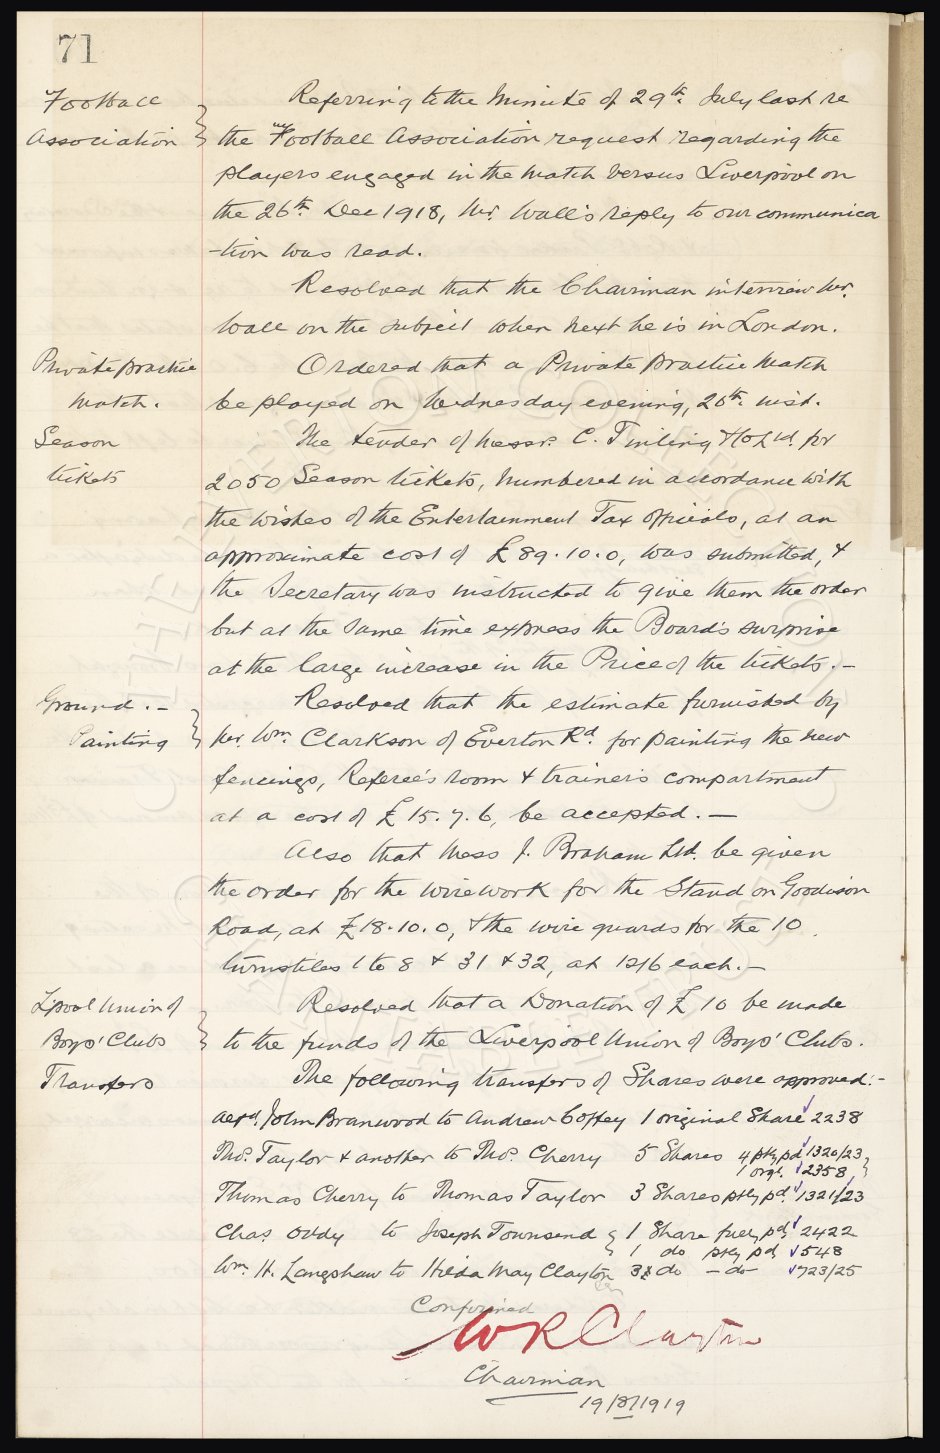 71
Football
Association
Referring to the Minute of 29th July last re
the Football Association request regarding the
players engaged in the match versus Liverpool on
the 26th Dec 1918, Mr. Wall's reply to our communica
-tion was read.
Resolved that the Chairman interview Mr.
Wall on the subject when next he is in London.
Private practice
match.
Ordered that a Private practice match
be played on Wednesday evening, 20th inst.
Season
tickets
The tender of Messrs. C. Tinling & Co Ltd. for
2050 Season tickets, numbered in accordance with
the wishes of the Entertainment Tax officials, at an
approximate cost of £89.10.0, was submitted, &
the Secretary was instructed to give them the order
but at the same time express the Board's surprise
at the large increase in the Price of the tickets. –
Ground. –
Painting
Resolved that the estimate furnished by
Mr. Wm. Clarkson of Everton Rd. for painting the new
fencings, Referee's room & trainer's compartment
at a cost of £15.7.6, be accepted. –
Also that Mess J. Braham Ltd. be given
the order for the wirework for the Stand on Goodison
Road, at £18.10.0, & the wire guards for the 10
turnstiles 1 to 8 & 31 & 32, at 12/6 each. –
L'pool Union of
Boys' Clubs
Resolved that a Donation of £10 be made
to the funds of the Liverpool Union of Boys' Clubs.
Transfers
The following transfers of Shares were approved: –
John Branwood to Andrew Coffey 1 original Share 2238
Thos. Taylor & another to Thos. Cherry 5 Shares 4 ptly pd 1320/23
1 orgl. 2358
Thomas Cherry to Thomas Taylor 3 Shares ptly pd. 1321/23
Chas. Oddy to Joseph Townsend 1 Share fully pd 2422
1 do ptly pd 548
Wm. H. Langshaw to Hilda May Clayton 3 do – do – 723/25
Confirmed
W R Clayton
Chairman
19/8/1919